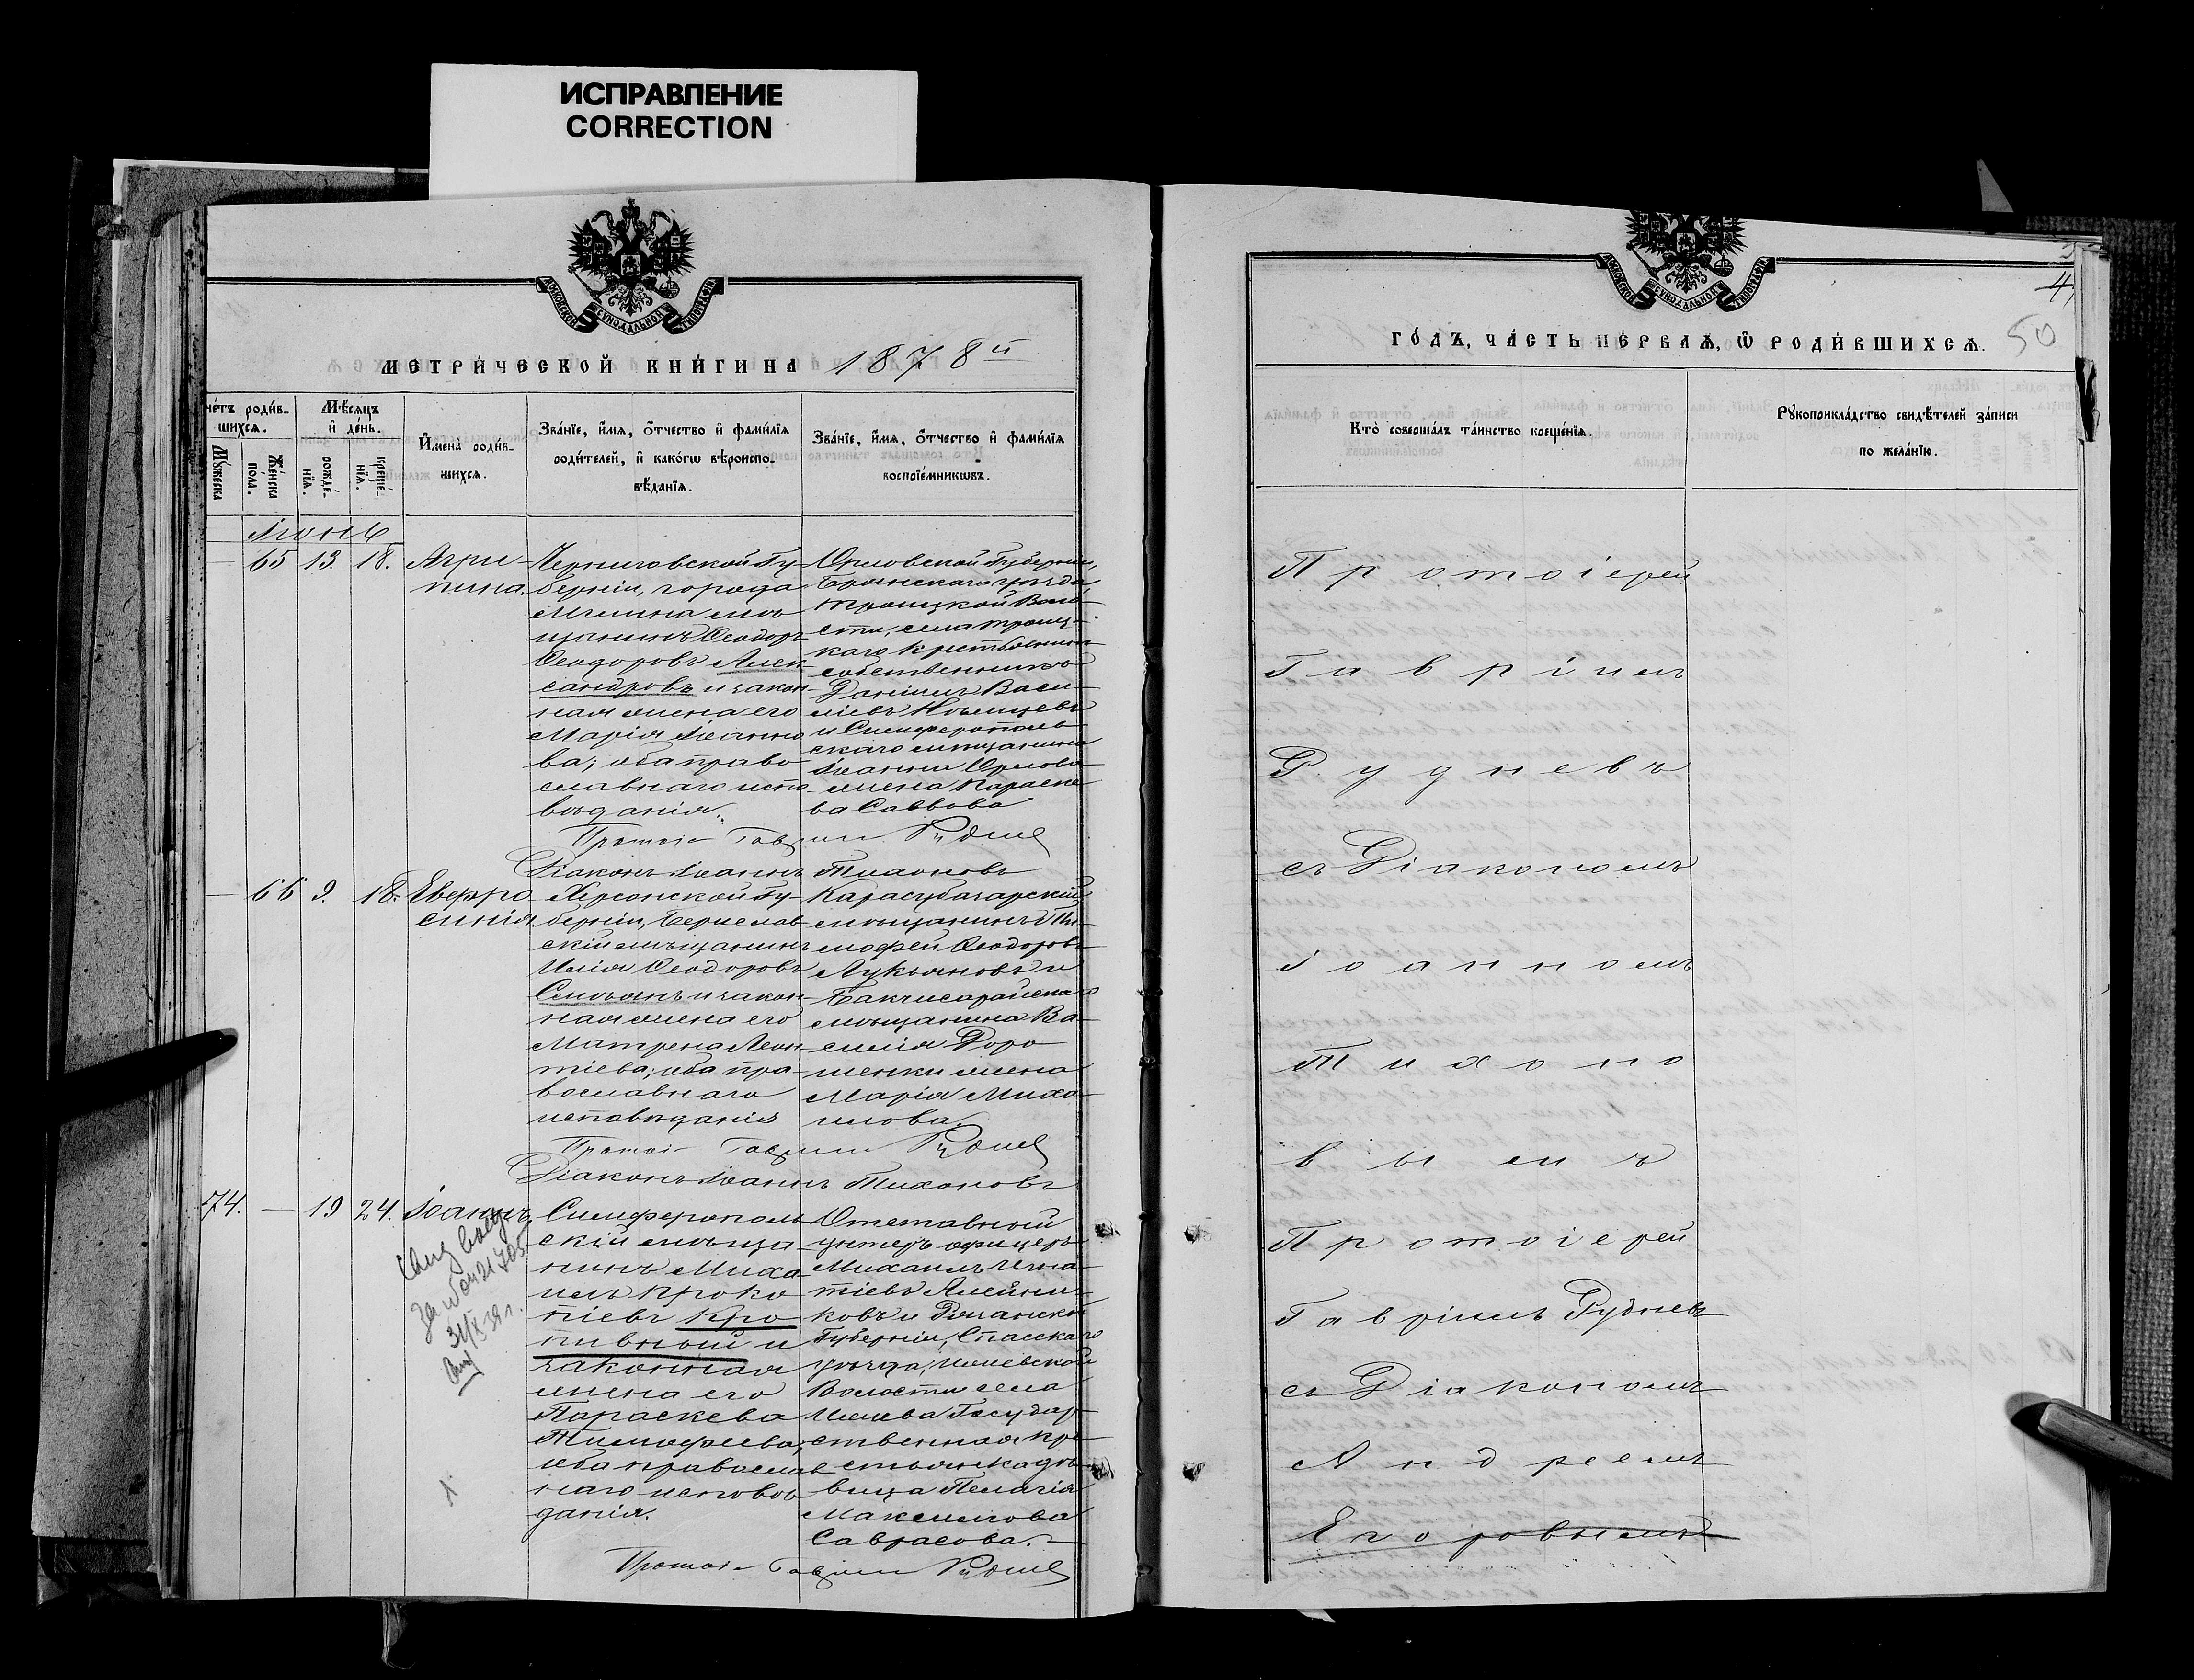 ИСПРАВЛЕНИЕ
CORRECTION
МОСКОВСКОЙ СѴНОДАЛЬНОЙ ТИПОГРАФІИ
МЕТРИ́ЧЕСКОЙ КНИ́ГИ НА 1878й
Счéтъ роди́в-
шихсѧ.
Мѣ́сѧцъ
и҆ де́нь.
Мꙋ́жеска
Же́нска
по́ла.
рожде́-
нїѧ.
креще́-
нїѧ.
И҆мена̀ роди́в-
шихсѧ.
Зва́нїе, и҆́мѧ, ѻ҆́тчество и҆ фами́лїѧ
роди́телей, и҆ како́гѡ вѣроиспо-
вѣ́данїѧ.
Зва́нїе, и҆́мѧ, ѻ҆́тчество и҆ фами́лїѧ
воспрїе́мникѡвъ.
Іюнь
— 65 13. 18. Агри-
пина.
Черниговской Гу-
берніи, города
Мглина мѣ-
щанинъ Ѳеодоръ
Ѳеодоровъ Алек-
сандровъ и закон-
ная жена его
Марія Іоанно-
ва; оба право-
славнаго испо-
вѣданія.
Орловской Губерніи,
Брянскаго уѣзда
Троицкой Воло-
сти, села Троиц-
каго крестьянинъ
собственникъ
Даніилъ Васи-
ліевъ
и Симферополь-
скаго мѣщанина
Іоанна Орлова
жена Параске-
ва Саввова
Протоі Гавріилъ Руднев
Діаконъ Іоаннъ Тихоновъ
— 66 9. 18. Евфро-
синія.
Херсонской Гу-
берніи, Берислав-
скій мѣщанинъ
Илія Ѳеодоровъ
Семьянъ и закон-
ная жена его
Матрена Леон-
тіева; оба пра-
вославнаго
исповѣданія
Карасубазарскій
мѣщанинъ Ти-
мофей Ѳеодоровъ
Лукьяновъ и
Бакчисарайскаго
мѣщанина Ва-
силія Доро-
шенки жена
Марія Михаи-
лова.
Протоі Гавріилъ Руднев
Діаконъ Іоаннъ Тихоновъ
74. — 19 24. Іоаннъ
31/X 39 г.
Симферополь-
скій мѣща-
нинъ Миха-
илъ Проко-
піевъ Кро-
пивный и
законная
жена его
Параскева
Тимофеева;
оба православ-
наго исповѣ-
данія.
Отставной
унтеръ офицеръ
Михаилъ Игна-
тіевъ Алейни-
ковъ и Рязанской
Губерніи, Спасскаго
уѣзда, Ижевской
Волости села
Ижева Государ-
ственная кре-
стьянка дѣ-
вица Пелагія
Максимова
Саврасова.
Протоі Гавріилъ Руднев
МОСКОВСКОЙ СѴНОДАЛЬНОЙ ТИПОГРАФІИ
ГО́ДЪ, ЧА́СТЬ ПЕ́РВАѦ, Ѽ РОДИ́ВШИХСѦ.
50
Кто̀ соверша́лъ та́инство креще́нїѧ.
Рꙋкоприкла́дство свидѣ́телей за́писи
по жела́нїю.
Протоіерей
Гавріилъ
Рудневъ
съ Діакономъ
Іоанномъ
Тихоно-
вымъ
Протоіерей
Гавріилъ Рудневъ
съ Діакономъ
Андреемъ
Егоровымъ